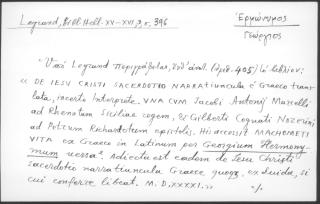 Legrand, Bibl. Hell. XV-XVI, 3, σ. 396
Ἑρμώνυμος
Γεώργιος
Ὑπὸ Legrand περιγράφεται, ἔνθ' ἀνωτ. (ἀριθ. 405) τὸ βιβλίον:
« DE IESU CRISTI SACERDOTIO NARRATIUNCULA è Graeco trans
lata, incerto Interprete. UNA CUM Jacobi Antonij Marcelli
ad Rhenatum Siciliae regem, & Gilberti Cognati Nozereni
ad Petrum Richardotum epistolis. HIS ACCESSIT MACHOMETI
VITA ex Graeco in Latinum per Georgium Hermony-
mum versa. Adiecta est eadem de Iesu Christi
sacerdotio narratiuncula Graece quoque, ex Suida, si
cui conferre libeat. M.D,XXXXI.»
-/.